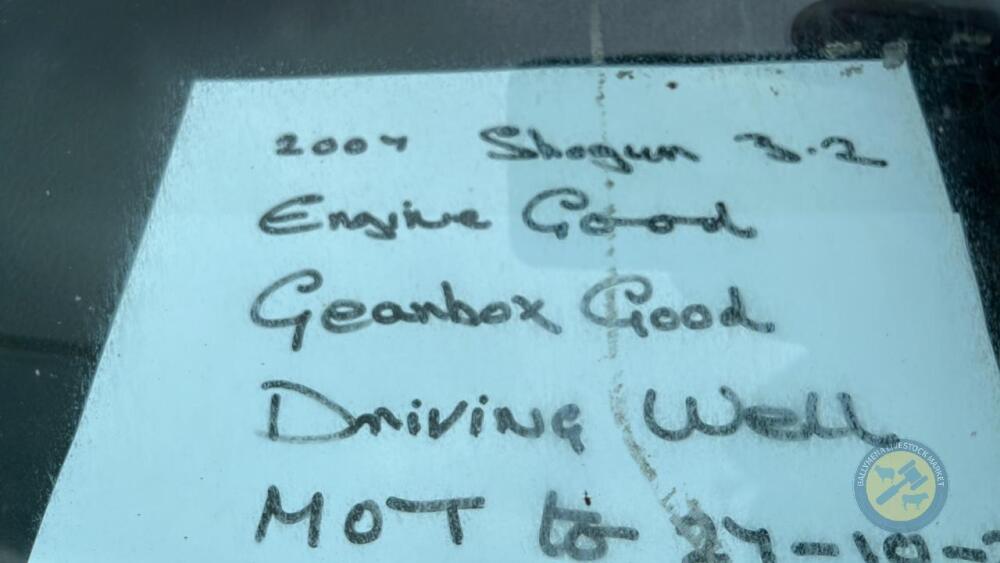 2007 Shogun 3.2
Engine Good
Gearbox Good
Driving Well
MOT to 27-10-
BALLYMENA LIVESTOCK MARKET